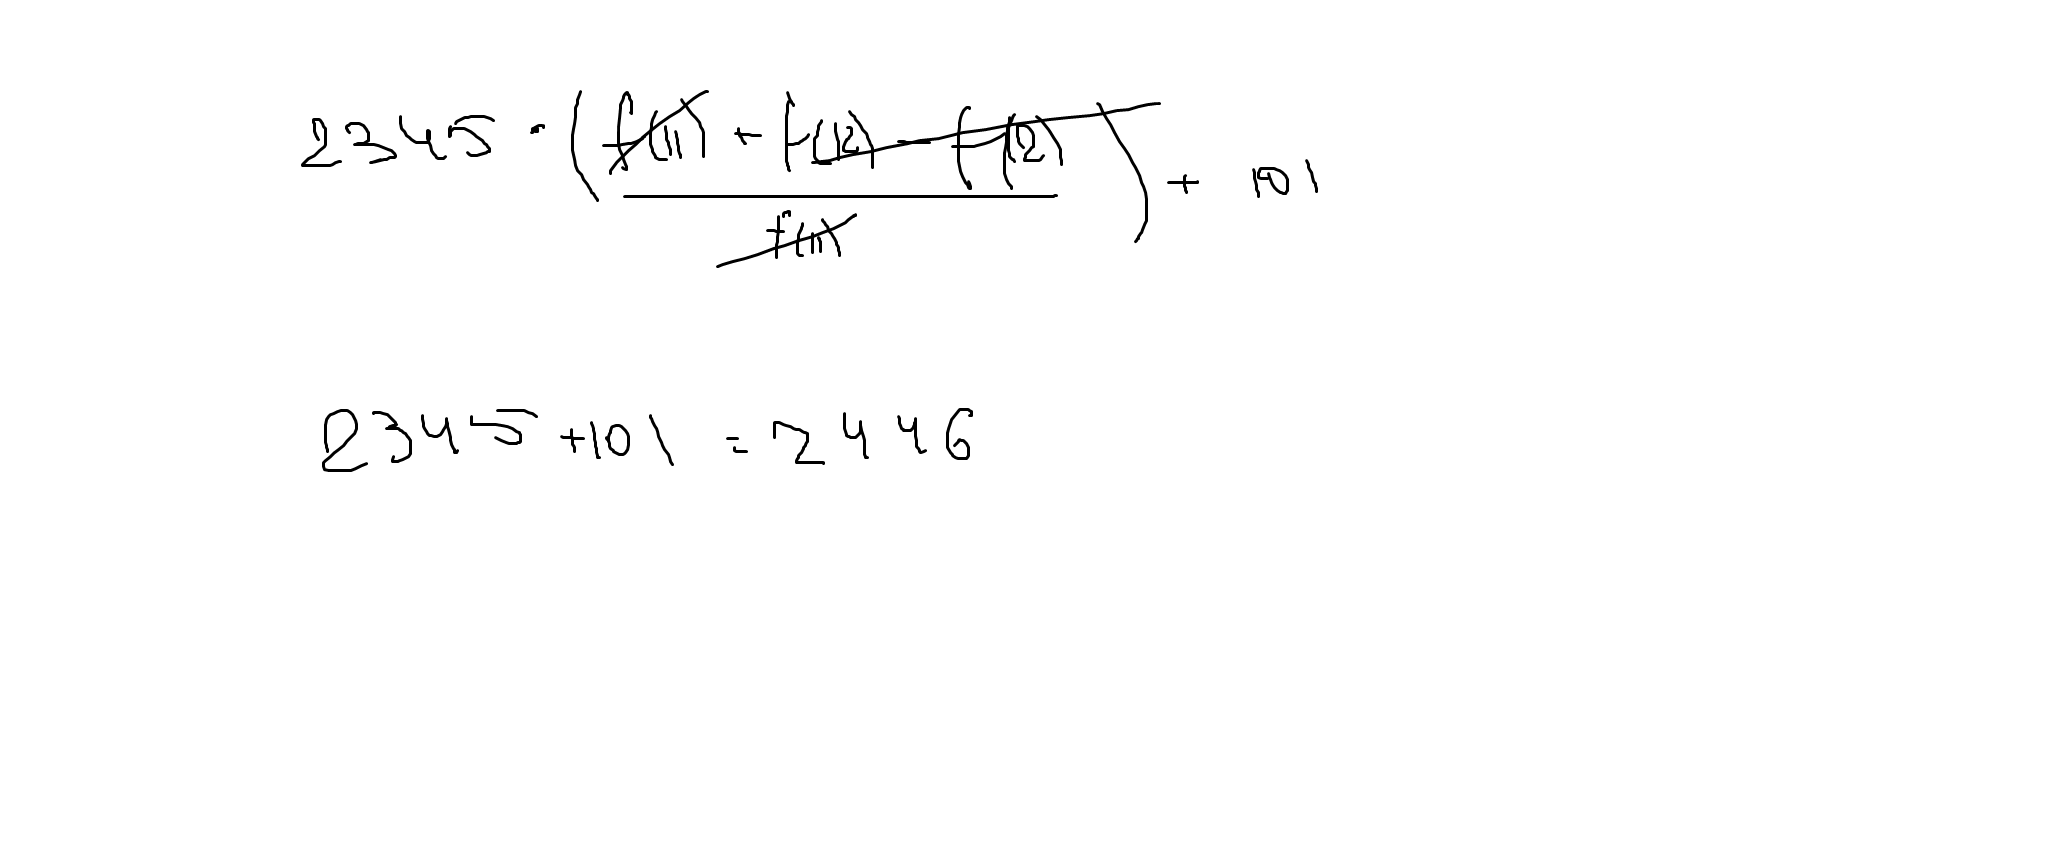 2345 · (f(11) + f(12) - f(12)) + 101
f(11)
2345 + 101 = 2446